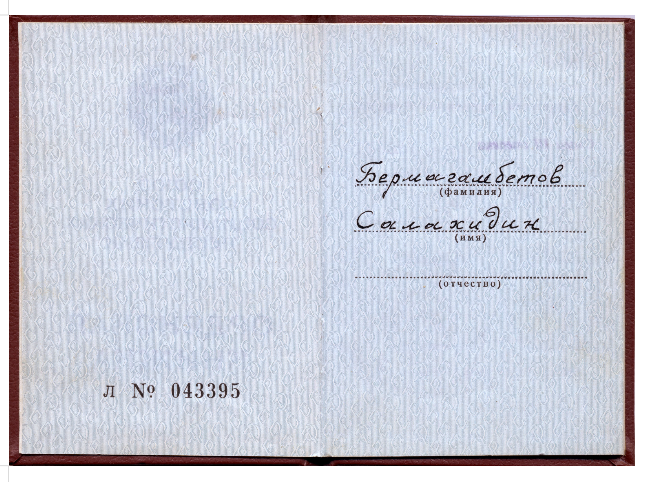 Л № 043395
Бермагамбетов
(фамилия)
Салахидин
(имя)
(отчество)